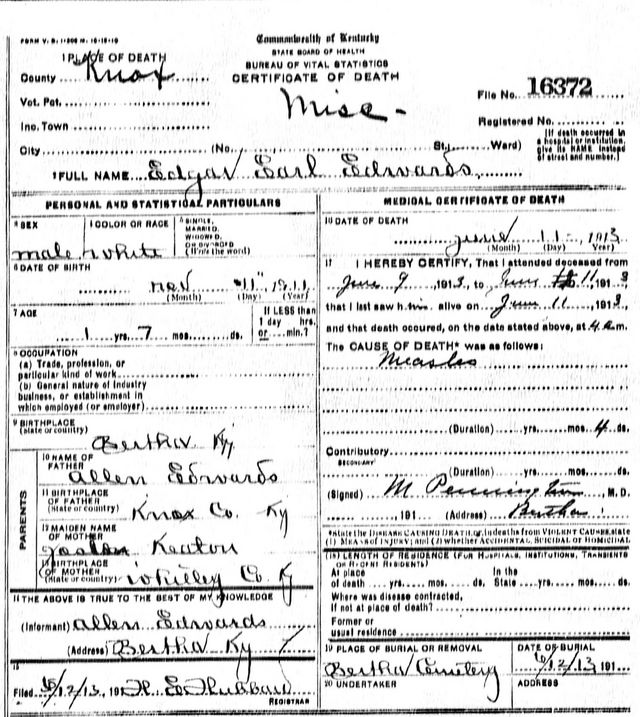 FORM V. S. 1-
Commonwealth of Kentucky
STATE BOARD OF HEALTH
BUREAU OF VITAL STATISTICS
CERTIFICATE OF DEATH
1 PLACE OF DEATH
County Knox
Vot. Pct.
Inc. Town
City (No. St.; Ward)
Misc -
File No. 16372
Registered No.
(If death occurred in a hospital or institution, give its NAME instead of street and number.)
2 FULL NAME Edgar Earl Edwards
PERSONAL AND STATISTICAL PARTICULARS
3 SEX
male
4 COLOR OR RACE
white
5 SINGLE, MARRIED, WIDOWED, OR DIVORCED (Write the word)
6 DATE OF BIRTH
nov 11 1911
(Month) (Day) (Year)
7 AGE
1 yrs. 7 mos. ds.
If LESS than 1 day hrs. or min.?
8 OCCUPATION
(a) Trade, profession, or particular kind of work
(b) General nature of industry business, or establishment in which employed (or employer)
9 BIRTHPLACE
(State or country)
Bertha Ky
PARENTS
10 NAME OF FATHER
Allen Edwards
11 BIRTHPLACE OF FATHER
(State or country)
Knox Co. Ky
12 MAIDEN NAME OF MOTHER
Keaton
13 BIRTHPLACE OF MOTHER
(State or country)
Whitley Co. Ky
14 THE ABOVE IS TRUE TO THE BEST OF MY KNOWLEDGE
(Informant) Allen Edwards
(Address) Bertha Ky
15
Filed 6/12/13, 191 H. E. Hubbard
REGISTRAR
MEDICAL CERTIFICATE OF DEATH
16 DATE OF DEATH
June 11 1913
(Month) (Day) (Year)
17 I HEREBY CERTIFY, That I attended deceased from
June 9, 1913, to June 11 1913
that I last saw him alive on June 11 1913,
and that death occured, on the date stated above, at 4 a.m.
The CAUSE OF DEATH* was as follows:
Measles
(Duration) yrs. mos. 4 ds.
Contributory
SECONDARY
(Duration) yrs. mos. ds.
(Signed) M Pennington, M. D.
, 191 (Address) Bertha
*State the DISEASE CAUSING DEATH, or, in deaths from VIOLENT CAUSES, state
(1) MEANS OF INJURY; and (2) whether ACCIDENTAL, SUICIDAL or HOMICIDAL
18 LENGTH OF RESIDENCE (FOR HOSPITALS, INSTITUTIONS, TRANSIENTS OR RECENT RESIDENTS)
At place of death yrs. mos. ds. In the State yrs. mos. ds.
Where was disease contracted,
If not at place of death?
Former or
usual residence
19 PLACE OF BURIAL OR REMOVAL
Bertha Cemetery
DATE OF BURIAL
6/12/13, 191
20 UNDERTAKER
ADDRESS